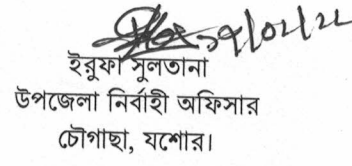 ইরুফা সুলতানা
উপজেলা নির্বাহী অফিসার
চৌগাছা, যশোর।